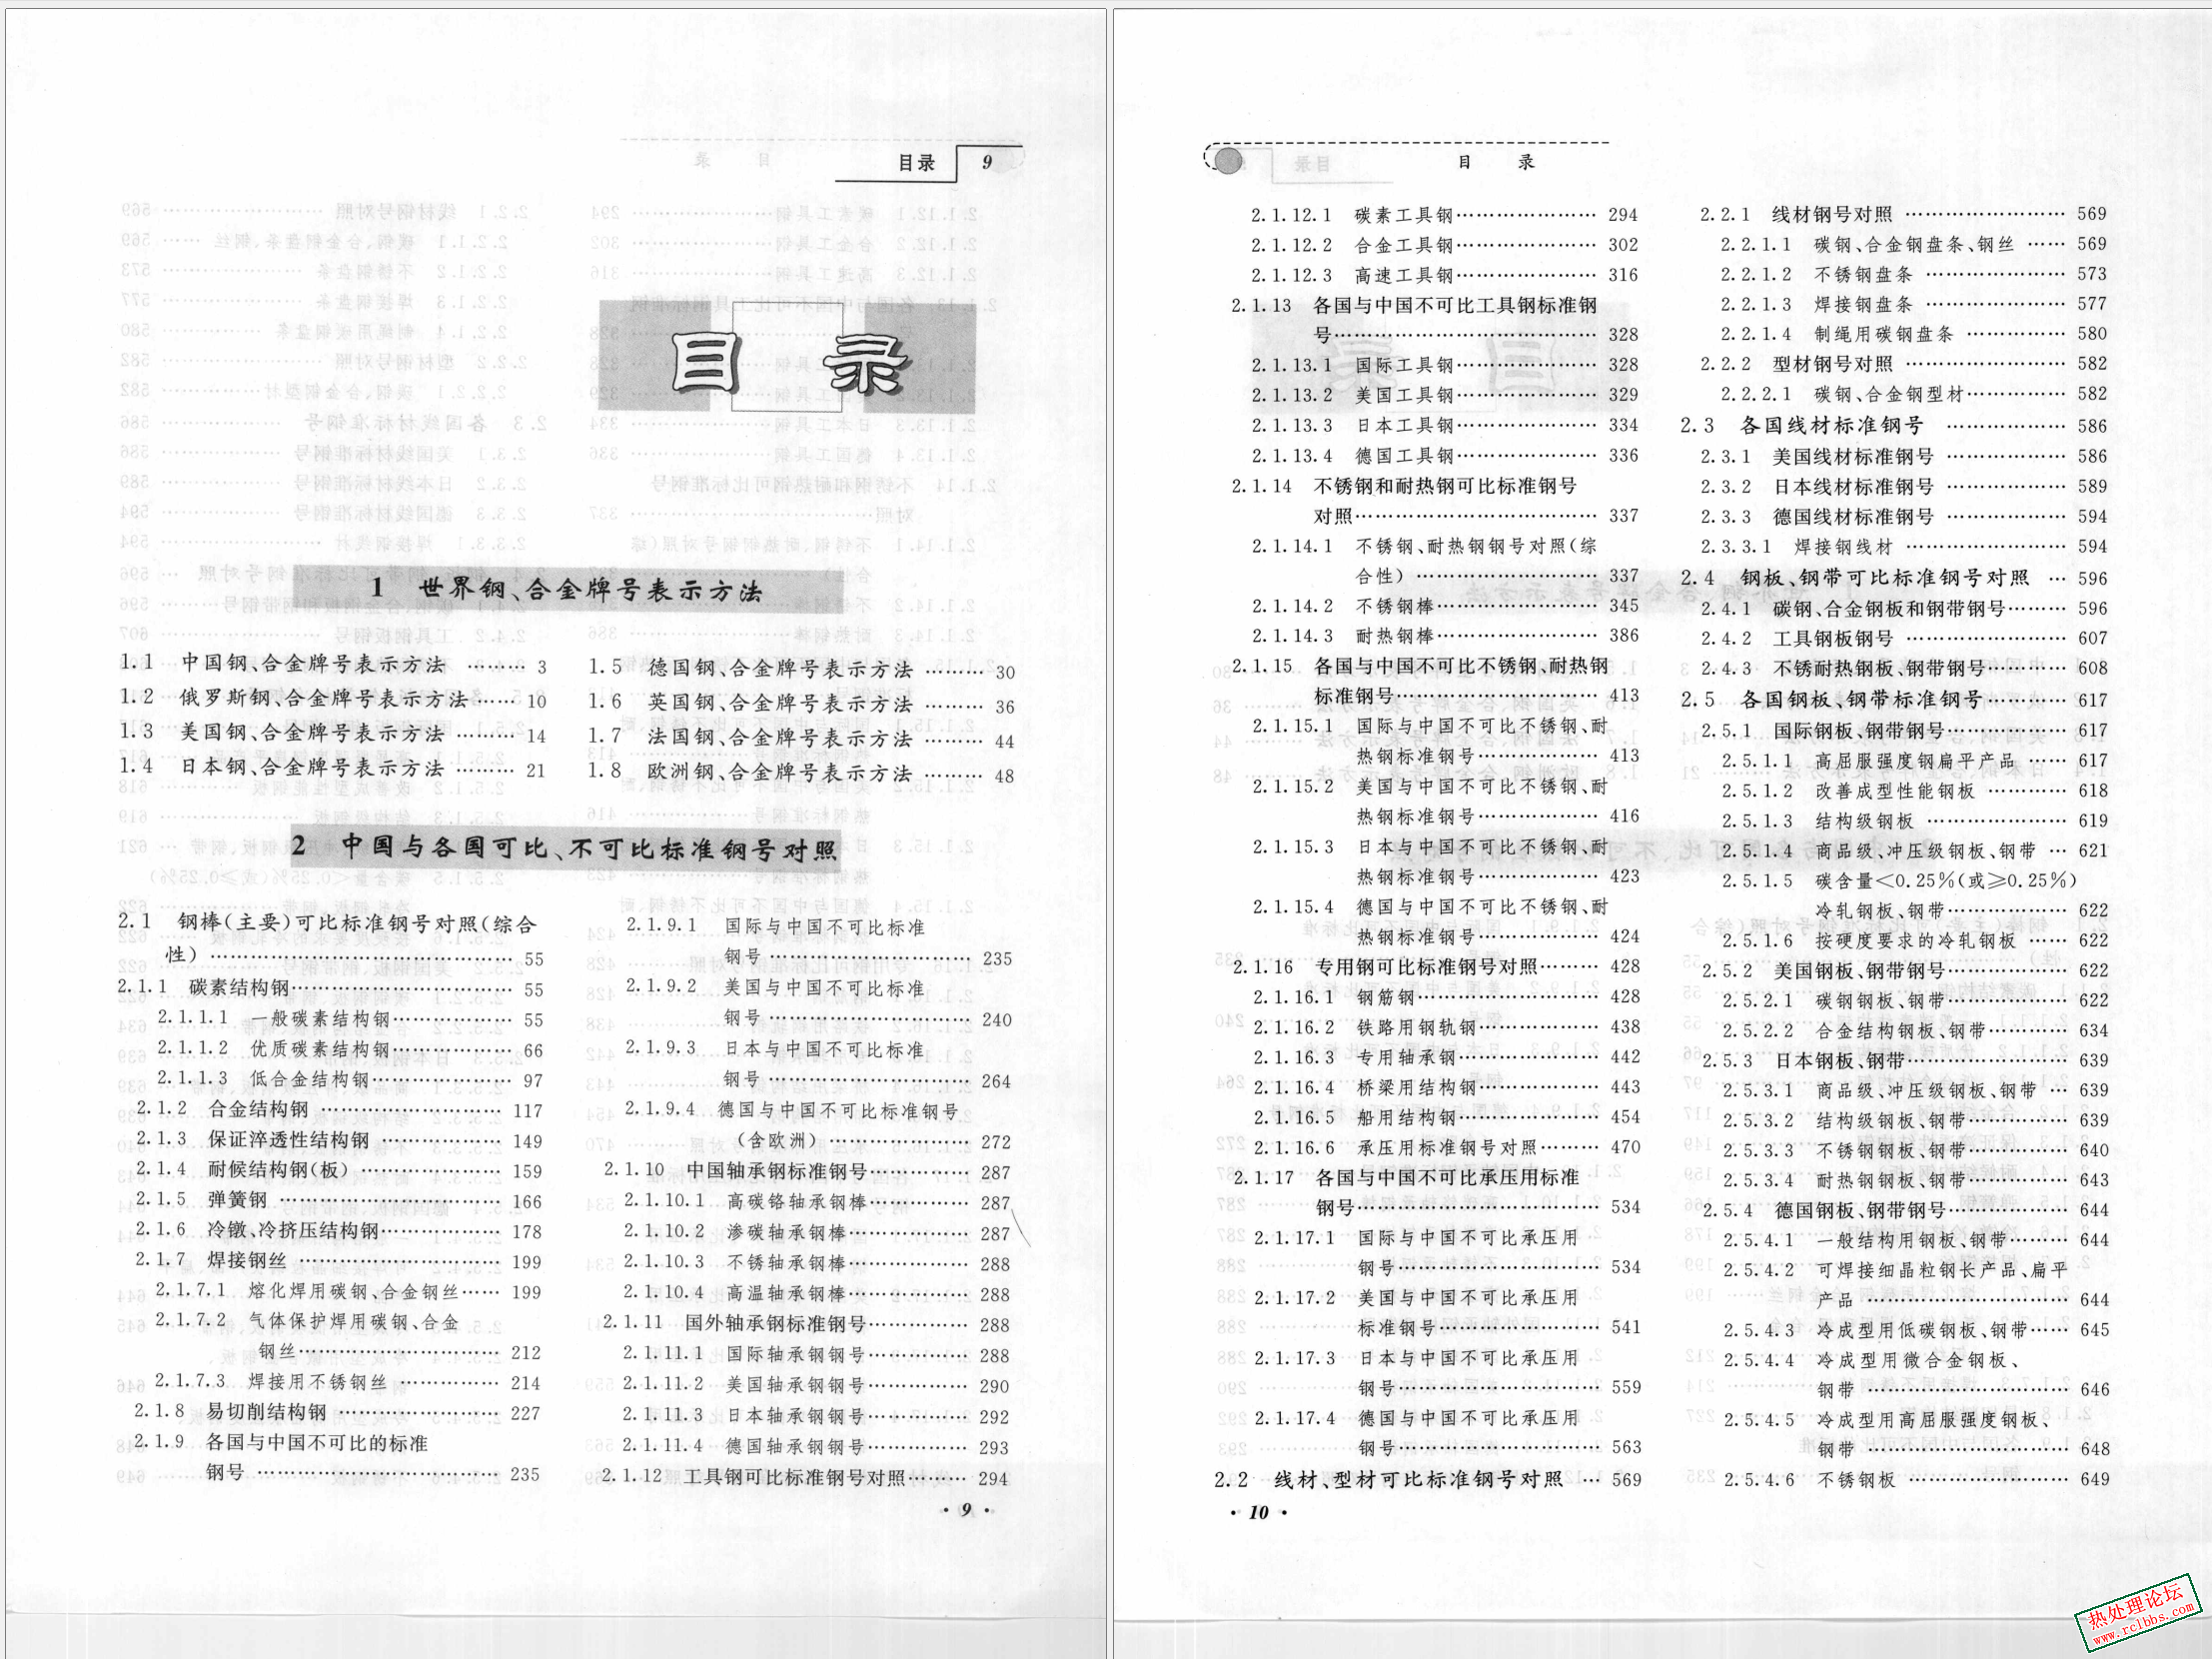 目录 9
目 录
1 世界钢、合金牌号表示方法
1.1 中国钢、合金牌号表示方法 ……… 3
1.2 俄罗斯钢、合金牌号表示方法 …… 10
1.3 美国钢、合金牌号表示方法 ……… 14
1.4 日本钢、合金牌号表示方法 ……… 21
1.5 德国钢、合金牌号表示方法 ……… 30
1.6 英国钢、合金牌号表示方法 ……… 36
1.7 法国钢、合金牌号表示方法 ……… 44
1.8 欧洲钢、合金牌号表示方法 ……… 48
2 中国与各国可比、不可比标准钢号对照
2.1 钢棒(主要)可比标准钢号对照(综合
性) ……………………………………… 55
2.1.1 碳素结构钢…………………………… 55
2.1.1.1 一般碳素结构钢……………… 55
2.1.1.2 优质碳素结构钢……………… 66
2.1.1.3 低合金结构钢………………… 97
2.1.2 合金结构钢 ……………………… 117
2.1.3 保证淬透性结构钢 ……………… 149
2.1.4 耐候结构钢(板) ………………… 159
2.1.5 弹簧钢 …………………………… 166
2.1.6 冷镦、冷挤压结构钢……………… 178
2.1.7 焊接钢丝 ………………………… 199
2.1.7.1 熔化焊用碳钢、合金钢丝…… 199
2.1.7.2 气体保护焊用碳钢、合金
钢丝………………………… 212
2.1.7.3 焊接用不锈钢丝 …………… 214
2.1.8 易切削结构钢 …………………… 227
2.1.9 各国与中国不可比的标准
钢号 ……………………………… 235
2.1.9.1 国际与中国不可比标准
钢号 ………………………… 235
2.1.9.2 美国与中国不可比标准
钢号 ………………………… 240
2.1.9.3 日本与中国不可比标准
钢号 ………………………… 264
2.1.9.4 德国与中国不可比标准钢号
(含欧洲) ………………… 272
2.1.10 中国轴承钢标准钢号…………… 287
2.1.10.1 高碳铬轴承钢棒…………… 287
2.1.10.2 渗碳轴承钢棒……………… 287
2.1.10.3 不锈轴承钢棒……………… 288
2.1.10.4 高温轴承钢棒……………… 288
2.1.11 国外轴承钢标准钢号…………… 288
2.1.11.1 国际轴承钢钢号…………… 288
2.1.11.2 美国轴承钢钢号…………… 290
2.1.11.3 日本轴承钢钢号…………… 292
2.1.11.4 德国轴承钢钢号…………… 293
2.1.12 工具钢可比标准钢号对照……… 294
· 9 ·
目 录
2.1.12.1 碳素工具钢………………… 294
2.1.12.2 合金工具钢………………… 302
2.1.12.3 高速工具钢………………… 316
2.1.13 各国与中国不可比工具钢标准钢
号………………………………… 328
2.1.13.1 国际工具钢………………… 328
2.1.13.2 美国工具钢………………… 329
2.1.13.3 日本工具钢………………… 334
2.1.13.4 德国工具钢………………… 336
2.1.14 不锈钢和耐热钢可比标准钢号
对照……………………………… 337
2.1.14.1 不锈钢、耐热钢钢号对照(综
合性) ……………………… 337
2.1.14.2 不锈钢棒…………………… 345
2.1.14.3 耐热钢棒…………………… 386
2.1.15 各国与中国不可比不锈钢、耐热钢
标准钢号………………………… 413
2.1.15.1 国际与中国不可比不锈钢、耐
热钢标准钢号……………… 413
2.1.15.2 美国与中国不可比不锈钢、耐
热钢标准钢号……………… 416
2.1.15.3 日本与中国不可比不锈钢、耐
热钢标准钢号……………… 423
2.1.15.4 德国与中国不可比不锈钢、耐
热钢标准钢号……………… 424
2.1.16 专用钢可比标准钢号对照……… 428
2.1.16.1 钢筋钢……………………… 428
2.1.16.2 铁路用钢轨钢……………… 438
2.1.16.3 专用轴承钢………………… 442
2.1.16.4 桥梁用结构钢……………… 443
2.1.16.5 船用结构钢………………… 454
2.1.16.6 承压用标准钢号对照……… 470
2.1.17 各国与中国不可比承压用标准
钢号……………………………… 534
2.1.17.1 国际与中国不可比承压用
钢号………………………… 534
2.1.17.2 美国与中国不可比承压用
标准钢号…………………… 541
2.1.17.3 日本与中国不可比承压用
钢号………………………… 559
2.1.17.4 德国与中国不可比承压用
钢号………………………… 563
2.2 线材、型材可比标准钢号对照 … 569
2.2.1 线材钢号对照 …………………… 569
2.2.1.1 碳钢、合金钢盘条、钢丝 …… 569
2.2.1.2 不锈钢盘条 ………………… 573
2.2.1.3 焊接钢盘条 ………………… 577
2.2.1.4 制绳用碳钢盘条 …………… 580
2.2.2 型材钢号对照 …………………… 582
2.2.2.1 碳钢、合金钢型材…………… 582
2.3 各国线材标准钢号 ……………… 586
2.3.1 美国线材标准钢号 ……………… 586
2.3.2 日本线材标准钢号 ……………… 589
2.3.3 德国线材标准钢号 ……………… 594
2.3.3.1 焊接钢线材 ………………… 594
2.4 钢板、钢带可比标准钢号对照 … 596
2.4.1 碳钢、合金钢板和钢带钢号……… 596
2.4.2 工具钢板钢号 …………………… 607
2.4.3 不锈耐热钢板、钢带钢号………… 608
2.5 各国钢板、钢带标准钢号………… 617
2.5.1 国际钢板、钢带钢号……………… 617
2.5.1.1 高屈服强度钢扁平产品 …… 617
2.5.1.2 改善成型性能钢板 ………… 618
2.5.1.3 结构级钢板 ………………… 619
2.5.1.4 商品级、冲压级钢板、钢带 … 621
2.5.1.5 碳含量<0.25%(或≥0.25%)
冷轧钢板、钢带……………… 622
2.5.1.6 按硬度要求的冷轧钢板 …… 622
2.5.2 美国钢板、钢带钢号……………… 622
2.5.2.1 碳钢钢板、钢带……………… 622
2.5.2.2 合金结构钢板、钢带………… 634
2.5.3 日本钢板、钢带…………………… 639
2.5.3.1 商品级、冲压级钢板、钢带 … 639
2.5.3.2 结构级钢板、钢带…………… 639
2.5.3.3 不锈钢钢板、钢带…………… 640
2.5.3.4 耐热钢钢板、钢带…………… 643
2.5.4 德国钢板、钢带钢号……………… 644
2.5.4.1 一般结构用钢板、钢带……… 644
2.5.4.2 可焊接细晶粒钢长产品、扁平
产品 ………………………… 644
2.5.4.3 冷成型用低碳钢板、钢带…… 645
2.5.4.4 冷成型用微合金钢板、
钢带 ………………………… 646
2.5.4.5 冷成型用高屈服强度钢板、
钢带 ………………………… 648
2.5.4.6 不锈钢板 …………………… 649
· 10 ·
热处理论坛
www.rclbbs.com